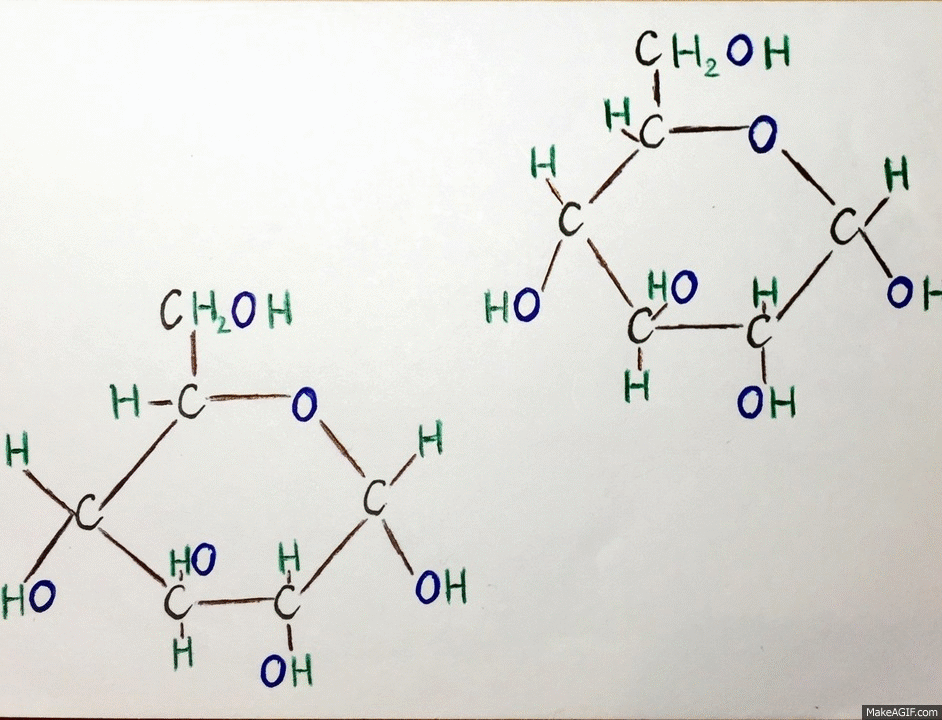 CH₂OH
H C O
H H
C C
HO HO H OH
C C
H OH
CH₂OH
H C O
H H
C C
HO H
HO C C OH
H OH
MakeAGIF.com